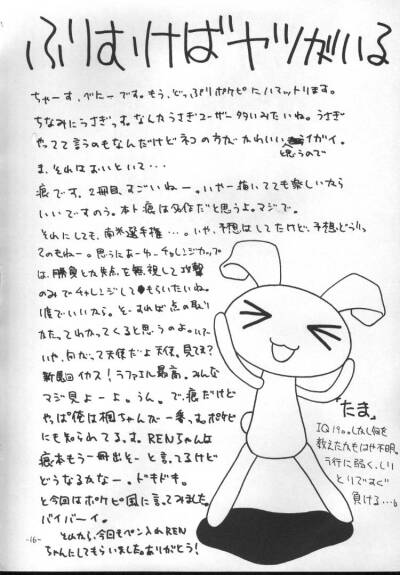 ふりむけばヤツがいる
ちゃーす、べにーです。もう、どっぷりポケピにハマっトります。
ちなみにうさぎっす。なんかうさぎユーザー多いみたいね。うさぎ
やってて言うのもなんだけどネコの方がかわいいと思うので
イガイ。
ま、それはおいといて・・・
痕です。2冊目、すごいねー。いやー描いてても楽しいなら
いいですのう。本ト痕は名作だと思うよ。マジで。
それにしても、南米選手権・・・。いや、予想はしてたけど、予想どうりっ
てのもねー。思うにあーゆーチャレンジカップ
は、勝負とか失点を無視して攻撃
のみでチャレンジしてもらいたいね。
1度でいいから。そーすれば点の取り
かたってわかってくると思うのよ。
いや、何か、って天使だよ天使。見てる?
新番組イカス!ラファエル最高。みんな
マジ見よーよ。うん。で、痕だけど
やっぱ俺は梓ちゃんが一番っす。ポケピ
にも知られてるす。RENちゃんは
痕本もう一冊出そーと言ってるけど
どうなるかなー。ドキドキ。
と今回はポケピ風に言ってみました。
バイバーイ。
それから、今回もペン入れREN
ちゃんにしてもらいました。ありがとう!
「たま」
IQ190。しかし何を
教えたかもはや不明。
ラ行に弱く、しり
とりですぐ
負ける…。
-16-